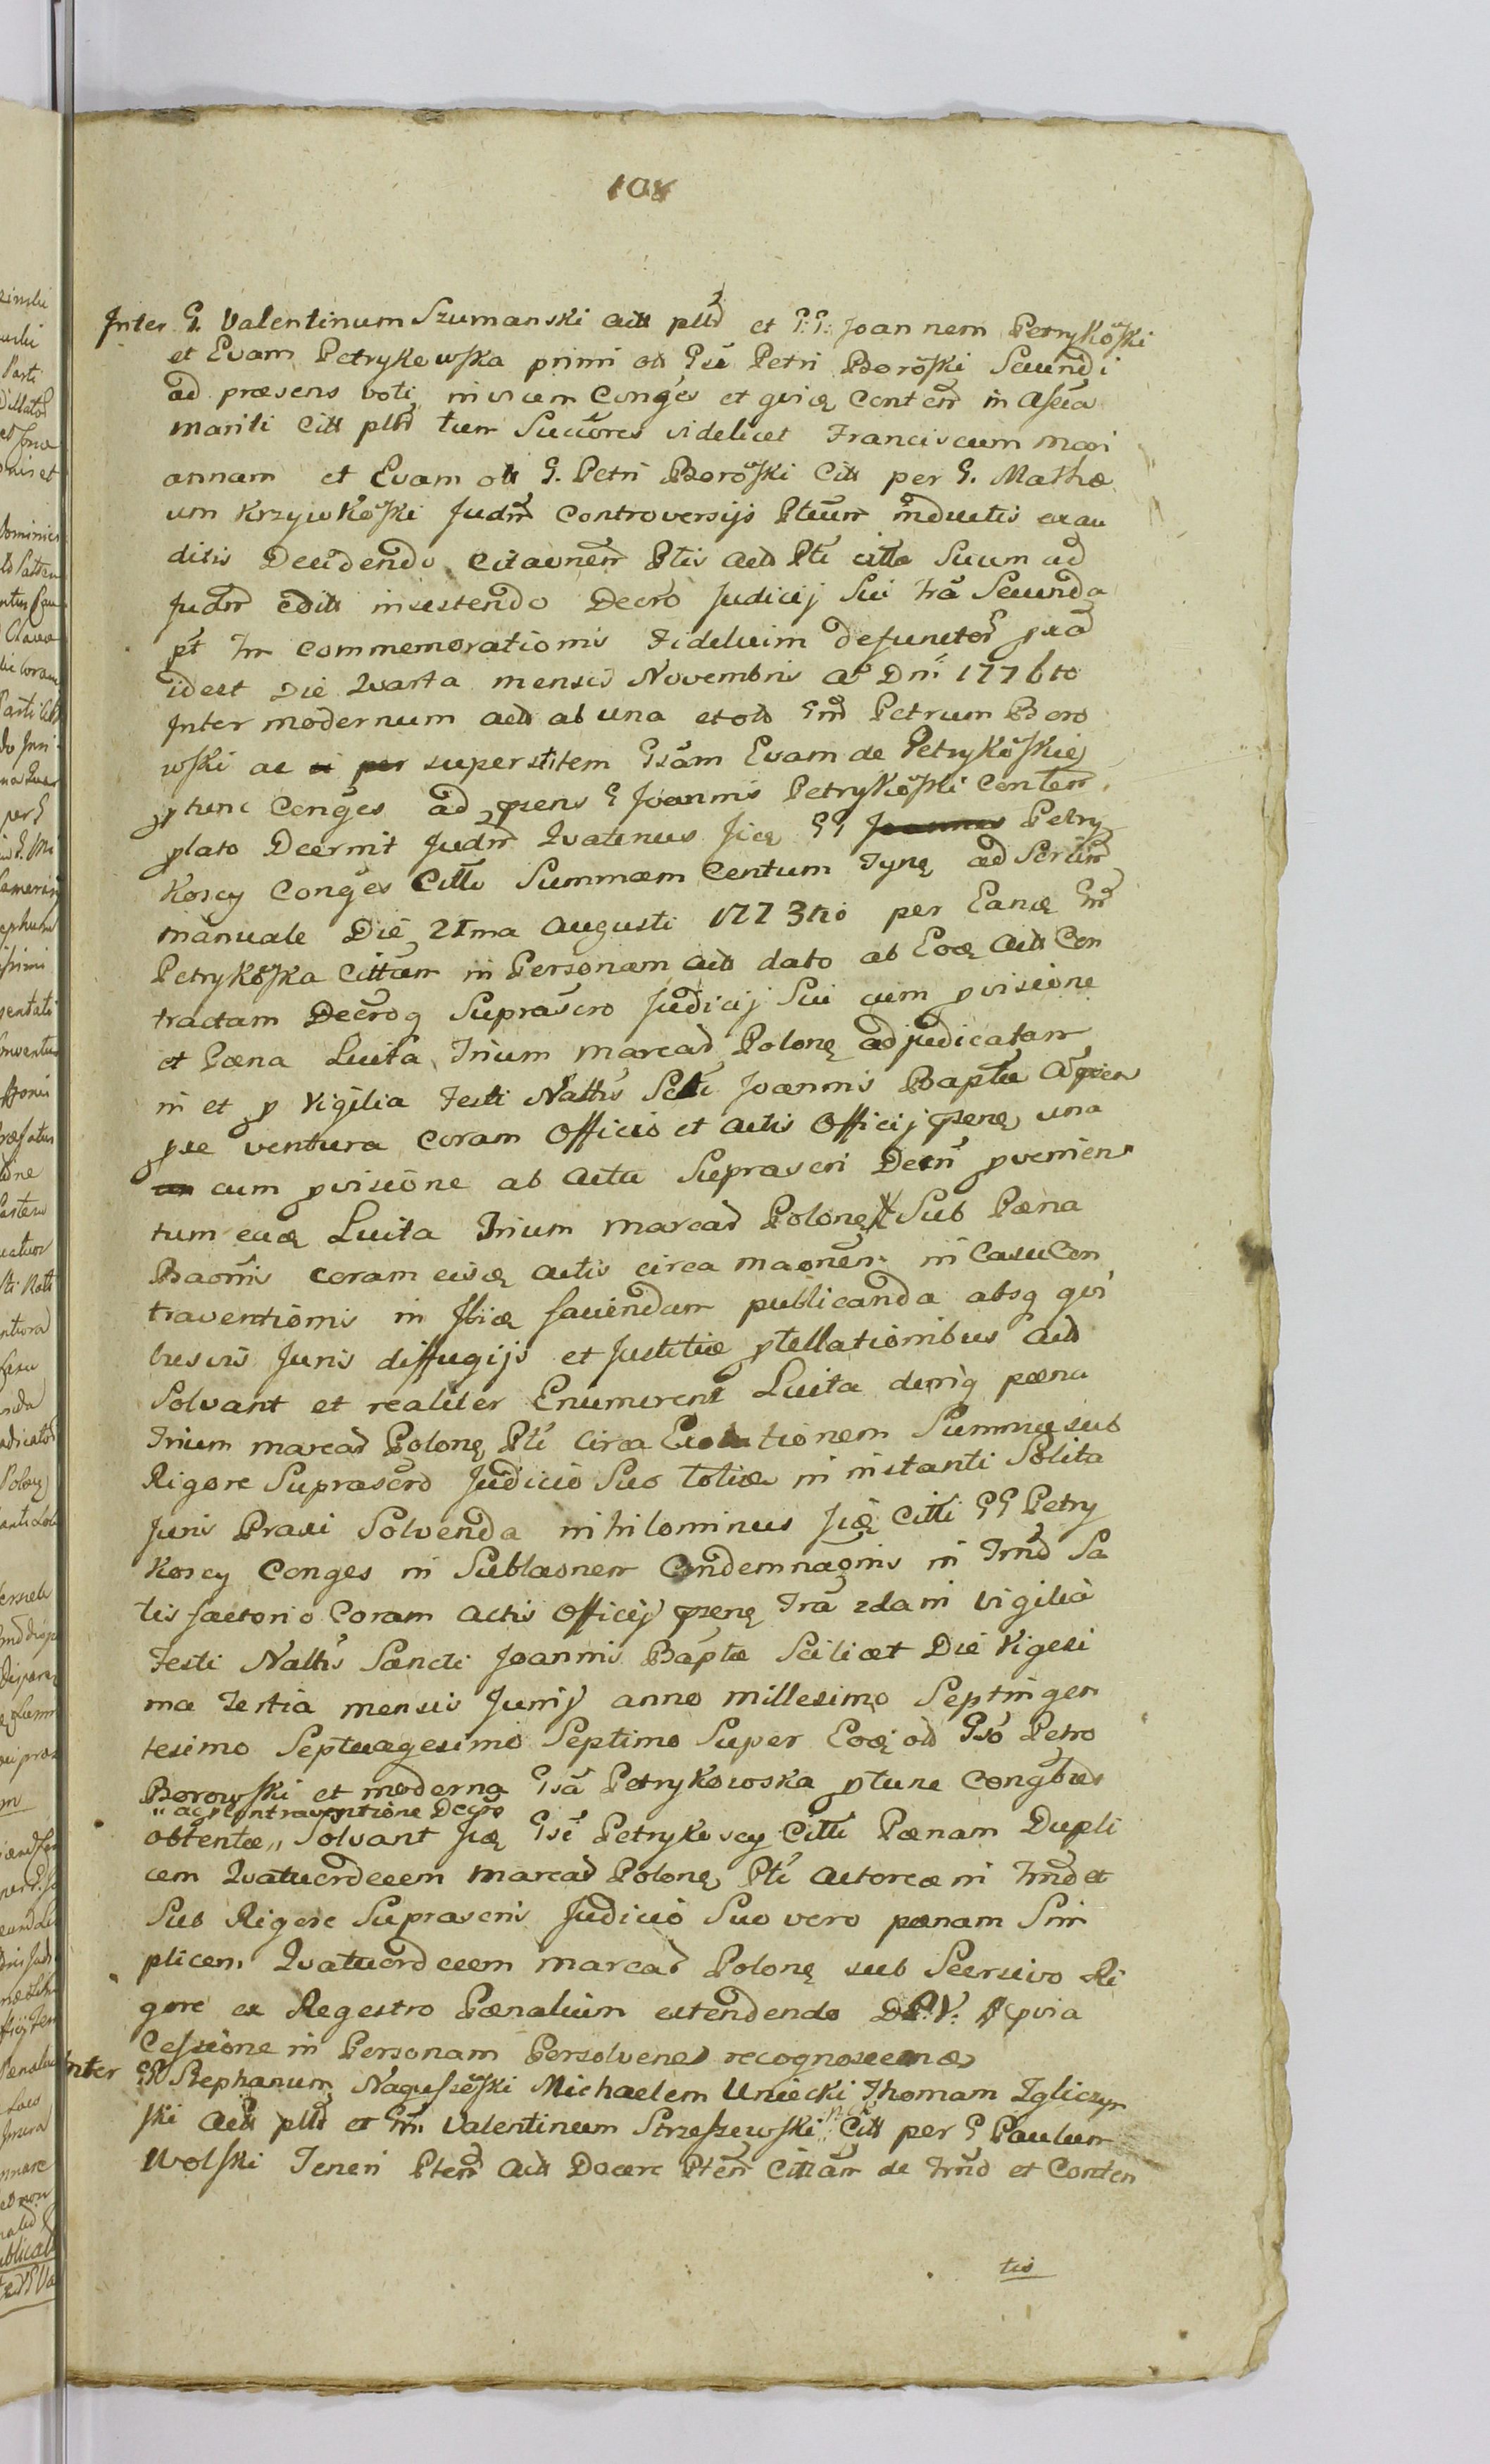 108
Inter G. Valentinum Szumanski actt pltd et G:G: Joannem Petrykoski
et Evam Petrykowska primi ott Gsi Petri Boroski Secundi
ad præsens voti invicem Conges et quiq Contem in Assia
mariti Citt pltd tum Succores videlicet Franciscum Mari
annam et Evam ott G. Petri Boroski Citt per G. Mathæ
um Krzywkoski Judm Controversijs Ptium inductis exau
ditis Decidendo Citaonem Ptis actt Pti citta Suum ad
Judm Editt insistendo Decro Judicij Sui fra Secunda
pt Fm Commemorationis Fidelium defunctor pxa
idest Die Quarta mensis Novembris Ao Dni 1776to
Inter modernum actt ab una et ott Gnd Petrum Boro
wski ac superstitem Gsam Evam de Petrykoskie
ptunc Conges ad psens G Joannis Petrykoski Contem
plato Decernit Judm Quatenus Jiq GG Petry
koscy Conges Citti Summam Centum Tynq ad Scrum
manuale Die 21ma Augusti 1773tio per Eanq Gm
Petrykoska Cittam in Personam actt dato ab Eoq actt Con
tractam Decroq Suprascro Judicij Sui cum pvisione
et Pæna Luita Trium marcar Polonq adjudicatam
in et p Vigilia Festi Nattis Scti Joannis Baptæ
pxe ventura Coram Officio et Actis Officij psenq una
cum pvisione ab actu Suprascri Decri pvenien
tum eaq Luita Trium marcar Polonq Sub Pæna
Baonis coram eisq Actis circa maonem in Casu Con
traventionis in Ibiq faciendam publicanda absq qui
busvis Juris diffugijs et Justitiæ ptellationibus actt
Solvant et realiter Enumerent Luita deniq pæna
Trium marcar Polonq Pti Circa Exolutionem Summæ sub
Rigore Suprascro Judicio Suo totiæ in instanti Solita
Juris Praxi Solvenda nihilominus Jiq Citti GG Petry
koscy Conges in Sublaonem Condemnaonis in Fmd Sa
tisfactorio Coram Actis Officij psenq Fra 2da in Vigilia
Festi Nattis Sancti Joannis Baptæ Scilicet Die Vigesi
ma Tertia mensis Junij anno millesimo Septingen
tesimo Septuagesimo Septimo Super Eoq ott Gso Petro
Borowski et moderna Gsa Petrykowska ptunc Congbus
"ac p Contraventione Decro
obtentæ" Solvant Jiq Gsi Petrykoscy Citti Pænam Dupli
cem Quatuordecem marcar Polonq Pti Actoreæ in Fmd et
Sub Rigore Suprascris Judicio Suo vero pænam Sim
plicem Quatuordecem marcar Polonq sub Secursivo Ri
gore ex Regestro Pænalium extendendo D.P.V. pvia
Cessione in Personam Persolvenq recognoscenq
Inter GG Stephanum Naguszeski Michaelem Uniecki Thomam Igliczyn
ski Actt pltd et Gm Valentinum Strzeszewski Citt per G Paulum
Wolski Teneri Ptem Actt Docere Ptem Cittam de Fmd et Conten
tis